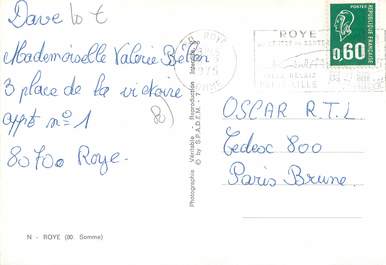 Dave lot
Mademoiselle Valérie
3 place de la victoire
appt n° 1
80700 Roye.
N - ROYE (80. Somme)
Photographie Véritable - Reproduction Interdite
© by S.P.A.D.E.M. - 7
80 ROYE
1975
SOMME
ROYE
POSTES
RÉPUBLIQUE FRANÇAISE
0,60
OSCAR R.T.L
Cedesc 800
Paris Brune.